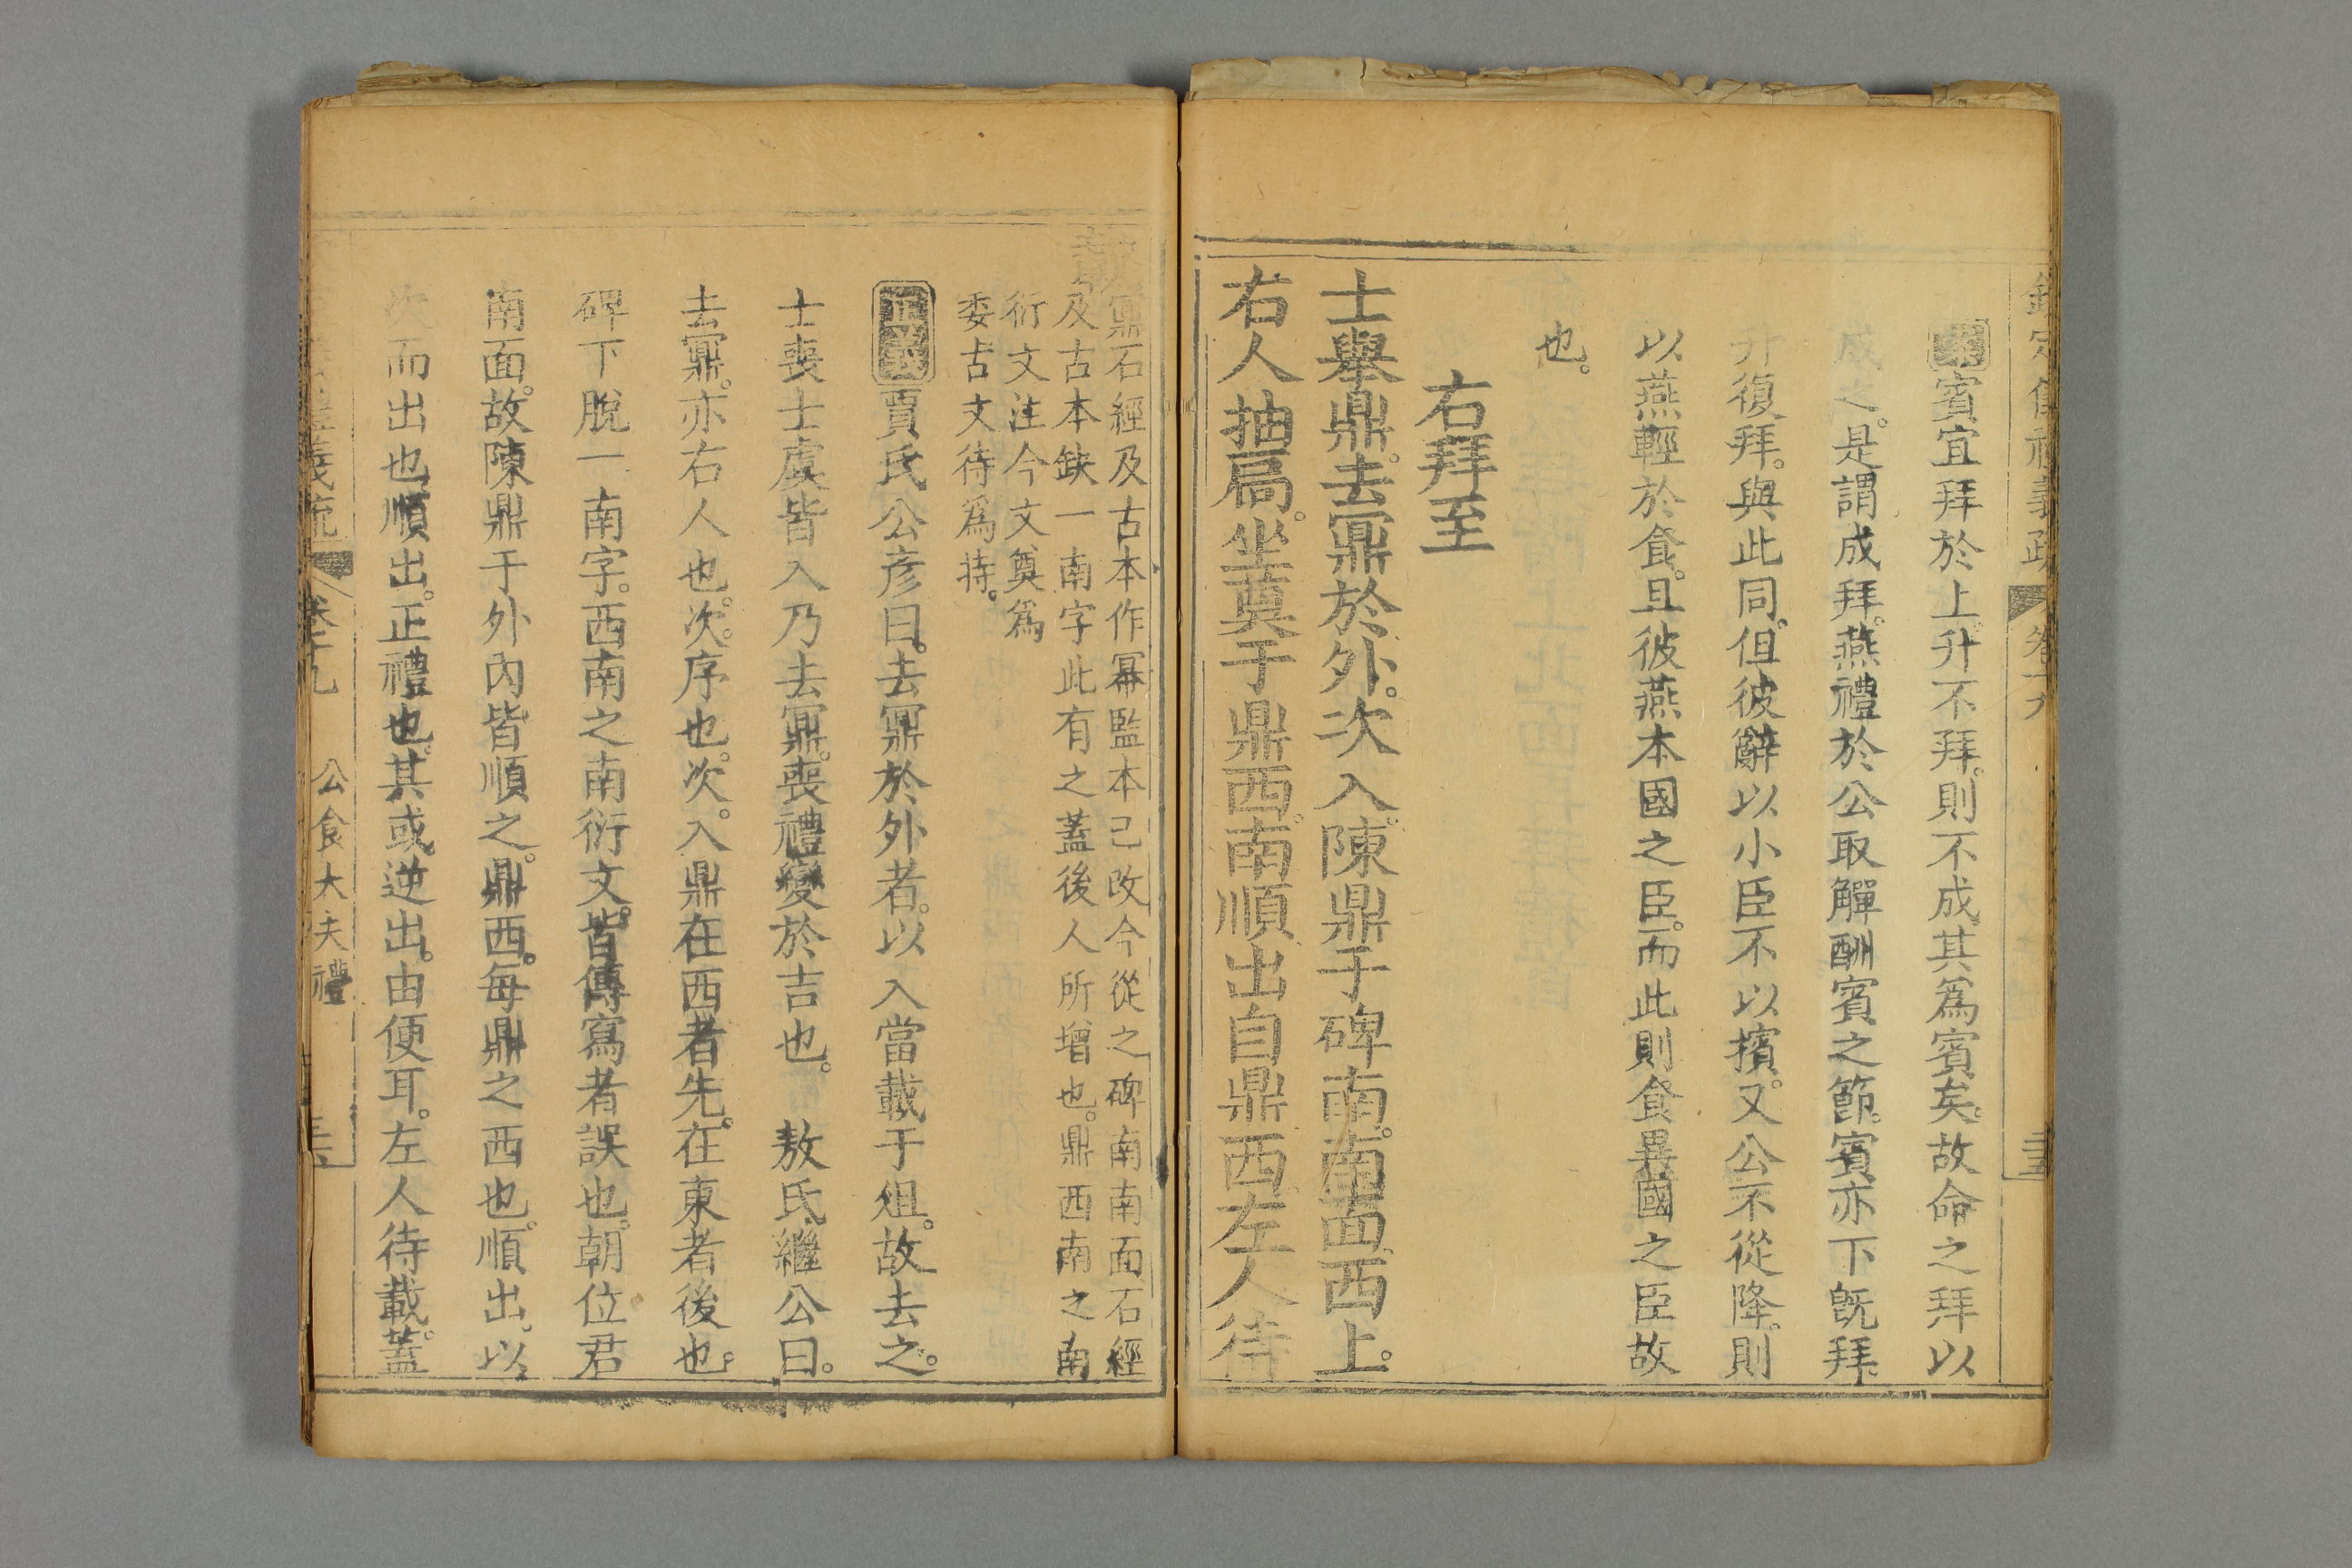 欽定儀禮義疏 卷十九
案賓宜拜於上升不拜則不成其為賓矣故命之拜以
成之是謂成拜燕禮於公取觶酬賓之節賓亦下既拜
升復拜與此同但彼辭以小臣不以擯又公不從降則
以燕輕於食且彼燕本國之臣而此則食異國之臣故
也
右拜至
士舉鼎去鼏於外次入陳鼎于碑南南面西上
右人抽扃坐奠于鼎西南順出自鼎西左人待
載
鼏石經及古本作冪監本已改今從之碑南南面石經
及古本缺一南字此有之蓋後人所增也鼎西南之南
衍文注今文奠為
委古文待為持
正義賈氏公彥曰去鼏於外者以入當載于俎故去之
士喪士虞皆入乃去鼏喪禮變於吉也 敖氏繼公曰
去鼏亦右人也次序也次入鼎在西者先在東者後也
碑下脫一南字西南之南衍文皆傳寫者誤也朝位君
南面故陳鼎于外內皆順之鼎西每鼎之西也順出以
次而出也順出正禮也其或逆出由便耳左人待載蓋
義疏 卷十九 公食大夫禮